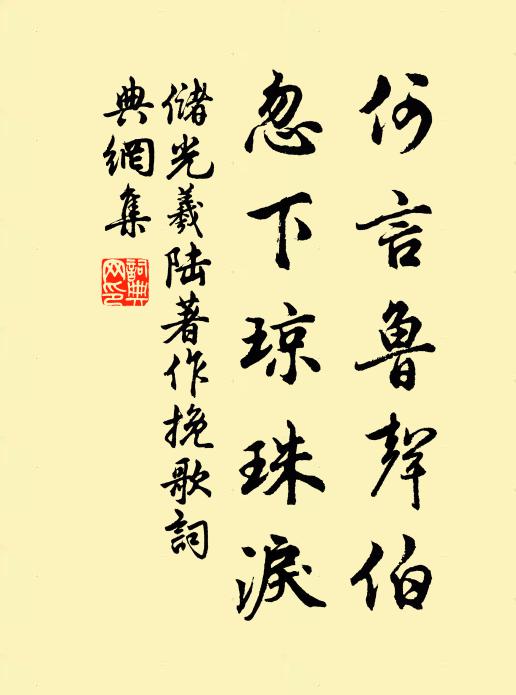 何言魯聲伯
忽下琼珠淚
儲光羲陸著作挽歌詞
典網集
詞典网印